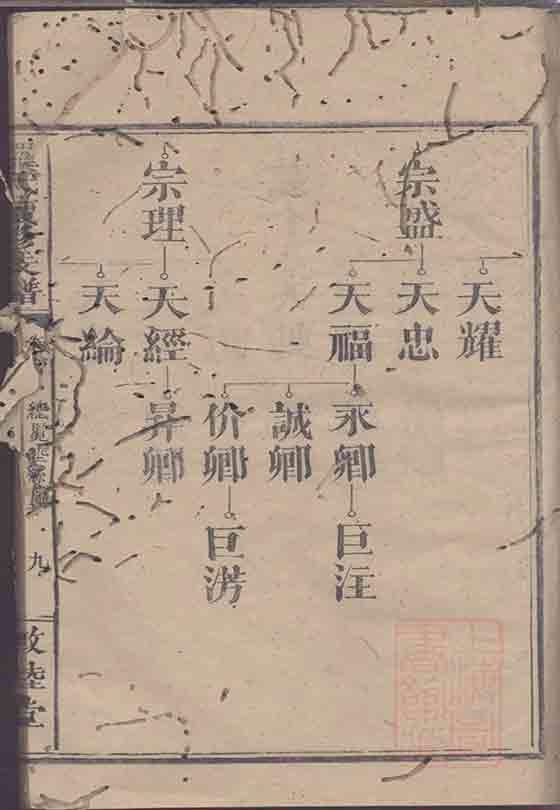 宗盛
天耀
天忠
天福
永卿
誠卿
价卿
巨汪
巨淓
宗理
天經
天綸
昇卿
修支譜
九
敦睦堂